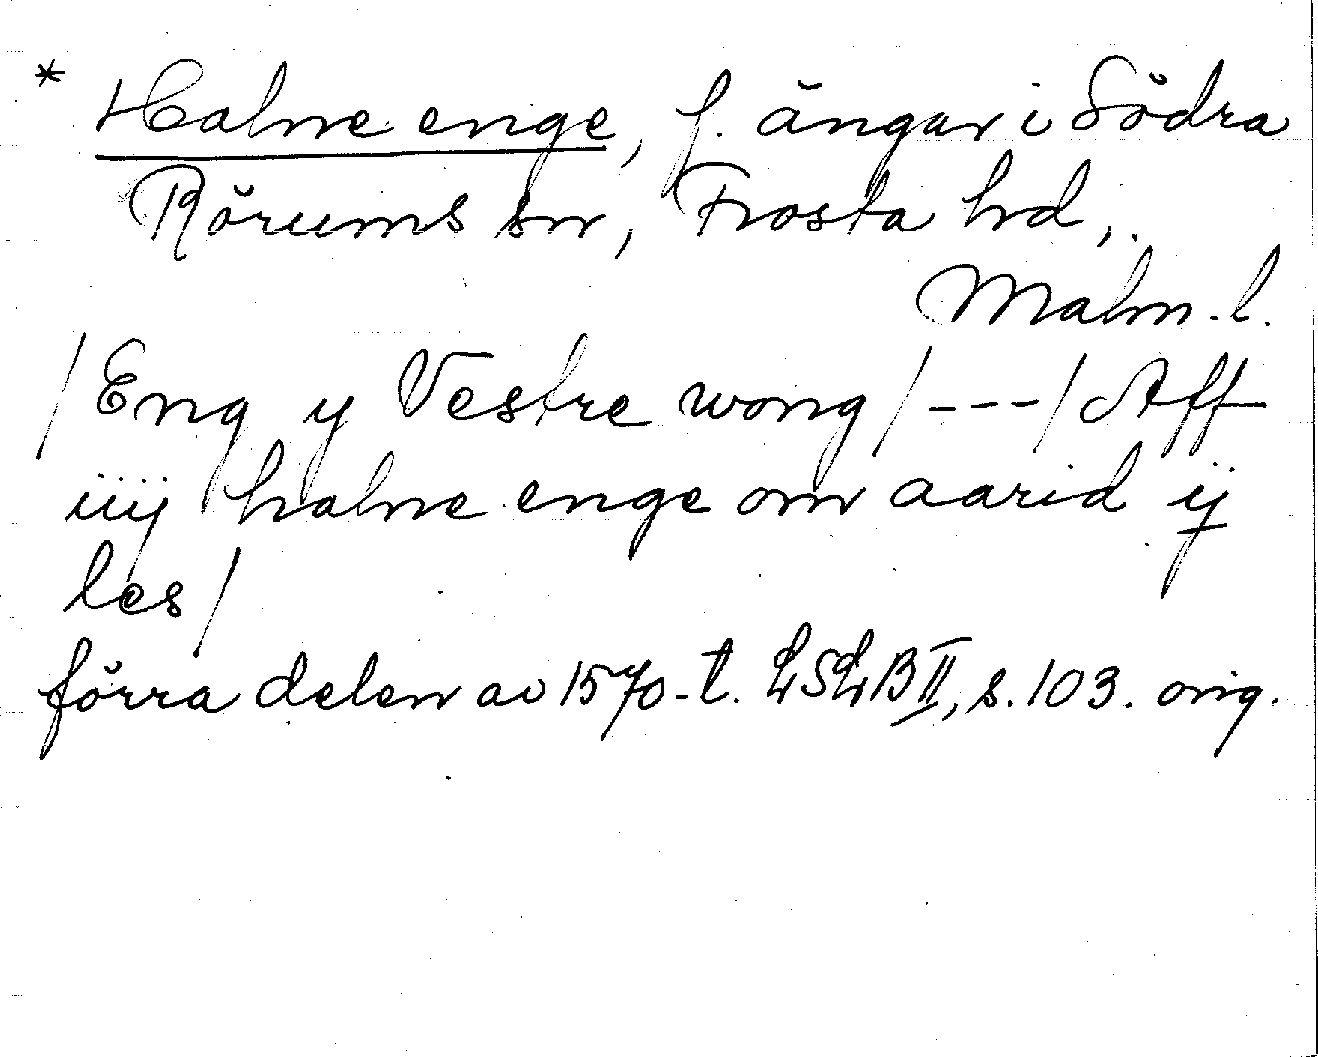 * Halne enge, f. ängar i Södra
Rörums sn, Frosta hd,
Malm. l.
/Eng y Vestre wong/---/Aff
iiij halne enge om aarid ij
les/
förra delen av 1570-t. LSLB II, s. 103. orig.